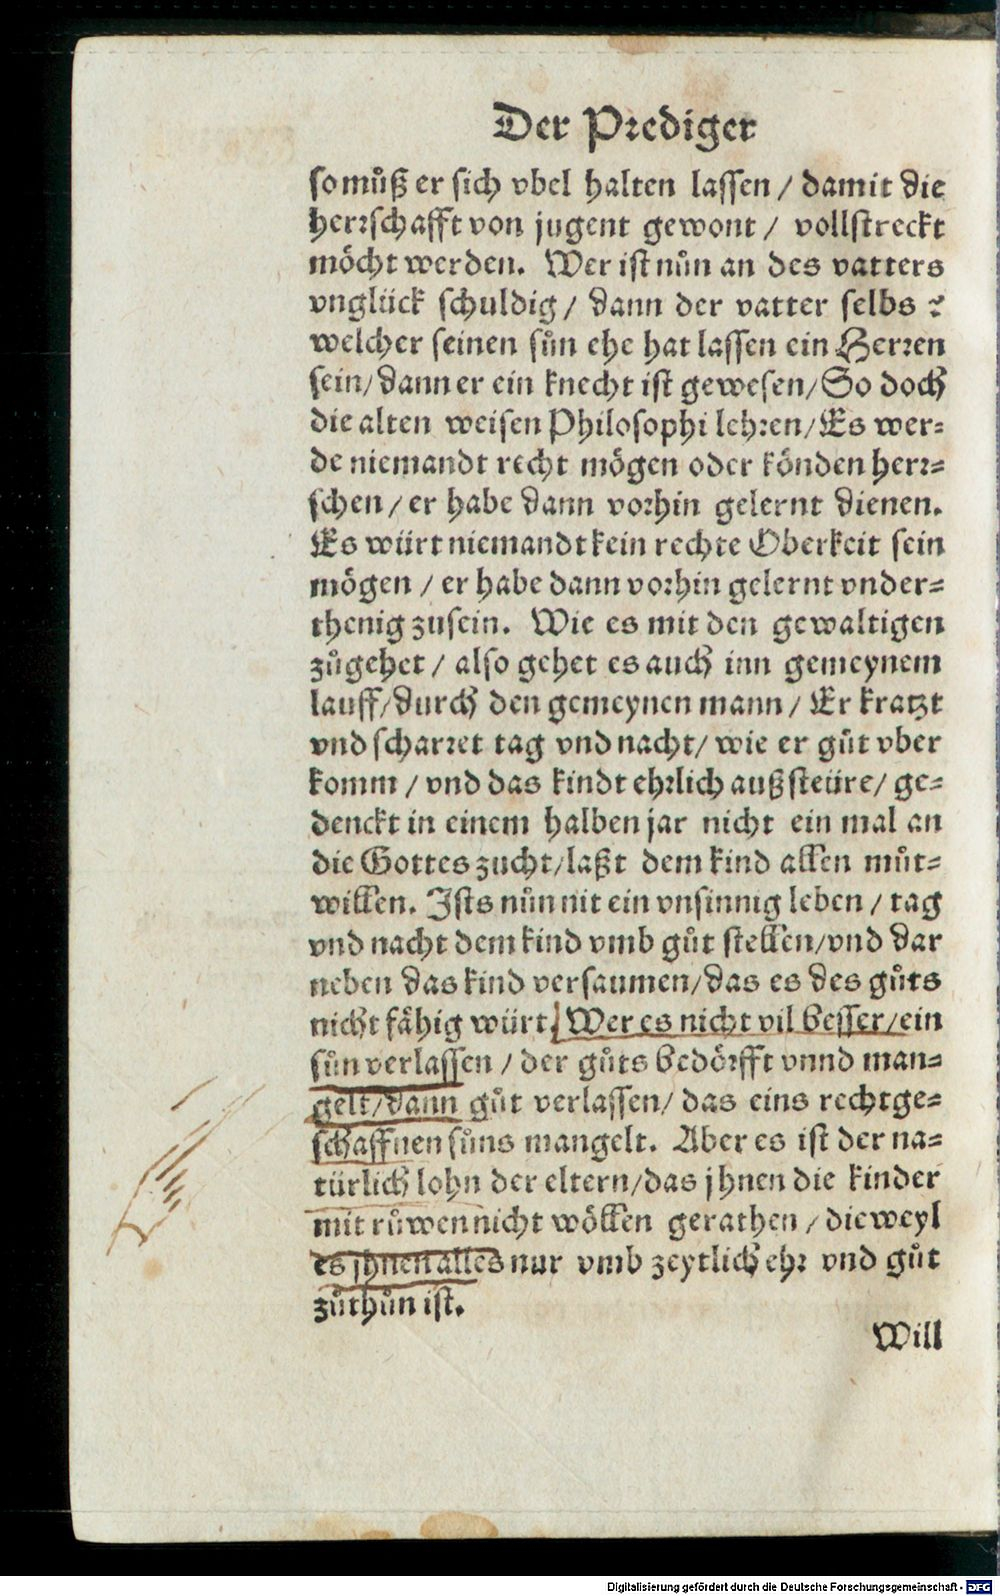 Der Prediger
so můß er sich vbel halten lassen / damit die
herrschafft von jugent gewont / vollstreckt
möcht werden. Wer ist nůn an des vatters
vnglück schuldig / dann der vatter selbs ?
welcher seinen sůn ehe hat lassen ein Herren
sein / dann er ein knecht ist gewesen / So doch
die alten weisen Philosophi lehren / Es wer⸗
de niemandt recht mögen oder könden herr⸗
schen / er habe dann vorhin gelernt dienen.
Es würt niemandt kein rechte Oberkeit sein
mögen / er habe dann vorhin gelernt vnder⸗
thenig zusein. Wie es mit den gewaltigen
zůgehet / also gehet es auch inn gemeynem
lauff / durch den gemeynen mann / Er kratzt
vnd scharret tag vnd nacht / wie er gůt vber
komm / vnd das kindt ehrlich außsteüre / ge⸗
denckt in einem halben jar nicht ein mal an
die Gottes zucht / laßt dem kind allen můt⸗
willen. Ists nůn nit ein vnsinnig leben / tag
vnd nacht dem kind vmb gůt stellen / vnd dar
neben das kind versaumen / das es des gůts
nicht fähig würt. Wer es nicht vil besser / ein
sůn verlassen / der gůts bedörfft vnnd man⸗
gelt / dann gůt verlassen / das eins rechtge⸗
schaffnen sůns mangelt. Aber es ist der na⸗
türlich lohn der eltern / das jhnen die kinder
mit růwen nicht wöllen gerathen / die weyl
es jhnen alles nur vmb zeytlich ehr vnd gůt
zůthůn ist.
Will
Digitalisierung gefördert durch die Deutsche Forschungsgemeinschaft - DFG